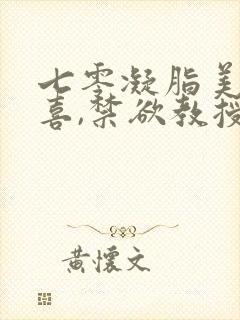 七零凝脂美
喜,禁欲教授
黄懷文